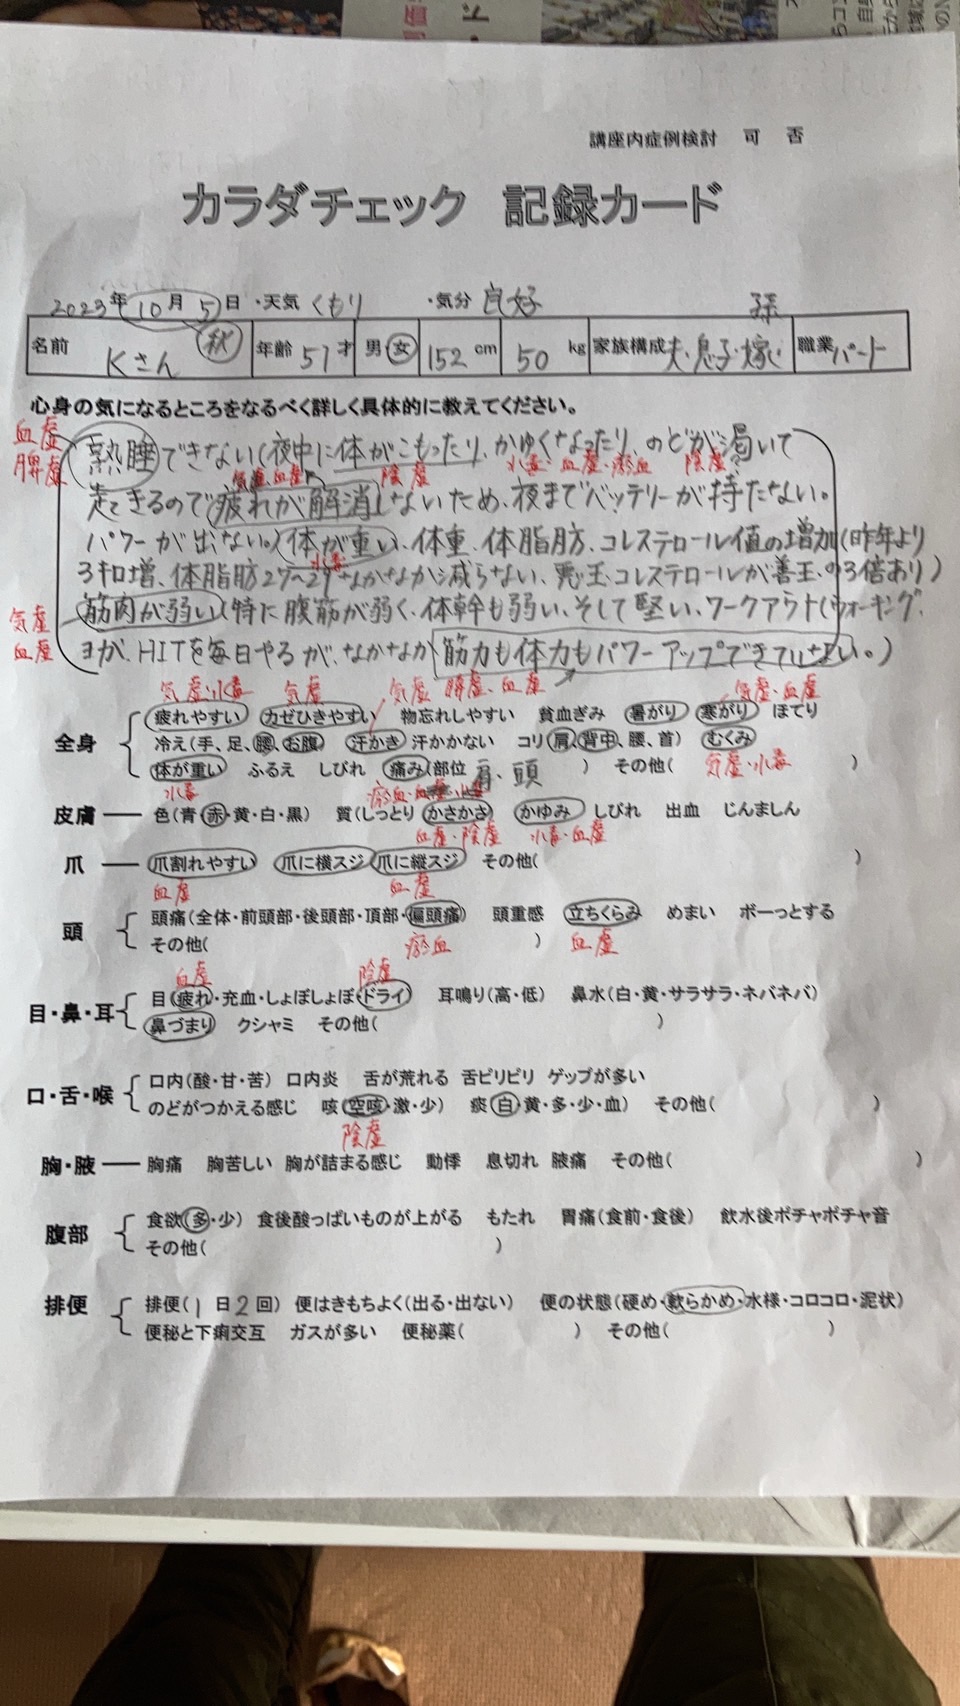 講座内症例検討 可 否
カラダチェック 記録カード
2023年10月5日 ・天気 くもり ・気分 良好
孫
名前 Kさん 秋 年齢 57才 男・女 152cm 50kg 家族構成 夫・息子・嫁 職業 パート
心身の気になるところをなるべく詳しく具体的に教えてください。
血虚
脾虚
熟睡できない(夜中に体がこもったり、かゆくなったり、のどが渇いて
気虚・血虚 陰虚 水毒・血虚・瘀血 陰虚
起きるので疲れが解消しないため、夜までバッテリーが持たない。
パワーが出ない。)体が重い、体重、体脂肪、コレステロール値の増加(昨年より
水毒
3キロ増、体脂肪27〜29なかなか減らない、悪玉コレステロールが善玉の3倍あり)
気虚
血虚
筋肉が弱い(特に腹筋が弱く、体幹も弱い、そして堅い、ワークアウト(ウォーキング、
ヨガ、HITを毎日やるが、なかなか筋力も体力もパワーアップできていない。)
気虚・水毒 気虚 気虚 脾虚・血虚 気虚・血虚
全身
疲れやすい カゼひきやすい 物忘れしやすい 貧血ぎみ 暑がり 寒がり ほてり
冷え(手、足、腰、お腹) 汗かき 汗かかない コリ(肩、背中、腰、首) むくみ
気虚・水毒
体が重い ふるえ しびれ 痛み(部位 肩、頭 ) その他( )
水毒 瘀血・血虚・水毒
皮膚 色(青・赤・黄・白・黒) 質(しっとり・かさかさ) かゆみ しびれ 出血 じんましん
血虚・陰虚 水毒・血虚
爪 爪割れやすい 爪に横スジ 爪に縦スジ その他( )
血虚 血虚
頭
頭痛(全体・前頭部・後頭部・頂部・偏頭痛) 頭重感 立ちくらみ めまい ボーっとする
その他( )
瘀血 血虚
血虚 陰虚
目・鼻・耳
目(疲れ・充血・しょぼしょぼ・ドライ) 耳鳴り(高・低) 鼻水(白・黄・サラサラ・ネバネバ)
鼻づまり クシャミ その他( )
口・舌・喉
口内(酸・甘・苦) 口内炎 舌が荒れる 舌ピリピリ ゲップが多い
のどがつかえる感じ 咳(空咳・激・少) 痰(白・黄・多・少・血) その他( )
陰虚
胸・腋 胸痛 胸苦しい 胸が詰まる感じ 動悸 息切れ 腋痛 その他( )
腹部
食欲(多・少) 食後酸っぱいものが上がる もたれ 胃痛(食前・食後) 飲水後ポチャポチャ音
その他( )
排便
排便(1日2回) 便はきもちよく(出る・出ない) 便の状態(硬め・軟らかめ・水様・コロコロ・泥状)
便秘と下痢交互 ガスが多い 便秘薬( ) その他( )